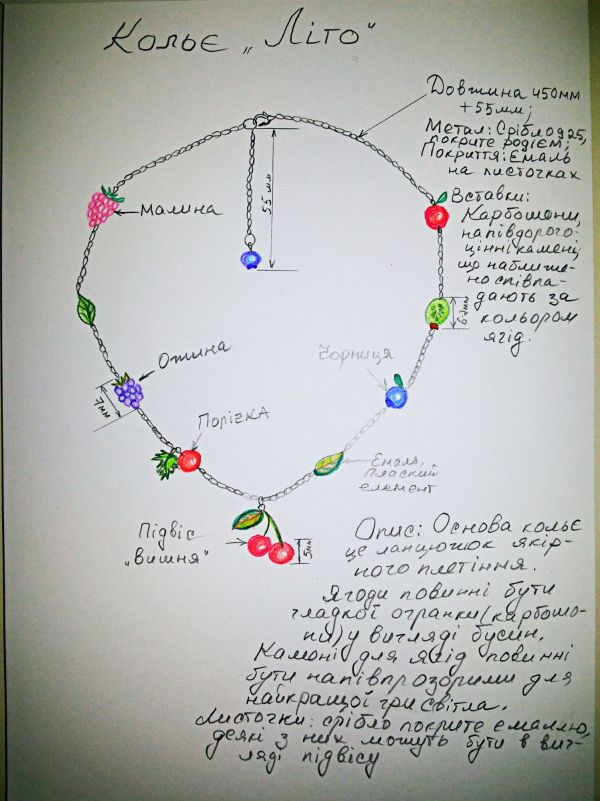 Кольє „Літо"
Довжина 450мм
+55мм;
Метал: Срібло 925,
покрите родієм;
Покриття: Емаль
на листочках
Вставки:
Карбошони,
напівдорого-
цінні камені,
що наближе-
но співпа-
дають за
кольором
ягід.
55 мм
Малина
6-7мм
Ожина
7мм
Чорниця
Порічка
Емаль,
Плаский
елемент
Підвіс
„Вишня"
5мм
Опис: Основа кольє
це ланцюжок якір-
ного плетіння.
Ягоди повинні бути
гладкої огранки (карбошо-
ни) у вигляді бусин.
Камені для ягід повинні
бути напівпрозорими для
найкращої гри світла.
Листочки: срібло покрите емаллю,
деякі з них можуть бути в виг-
ляді підвісу